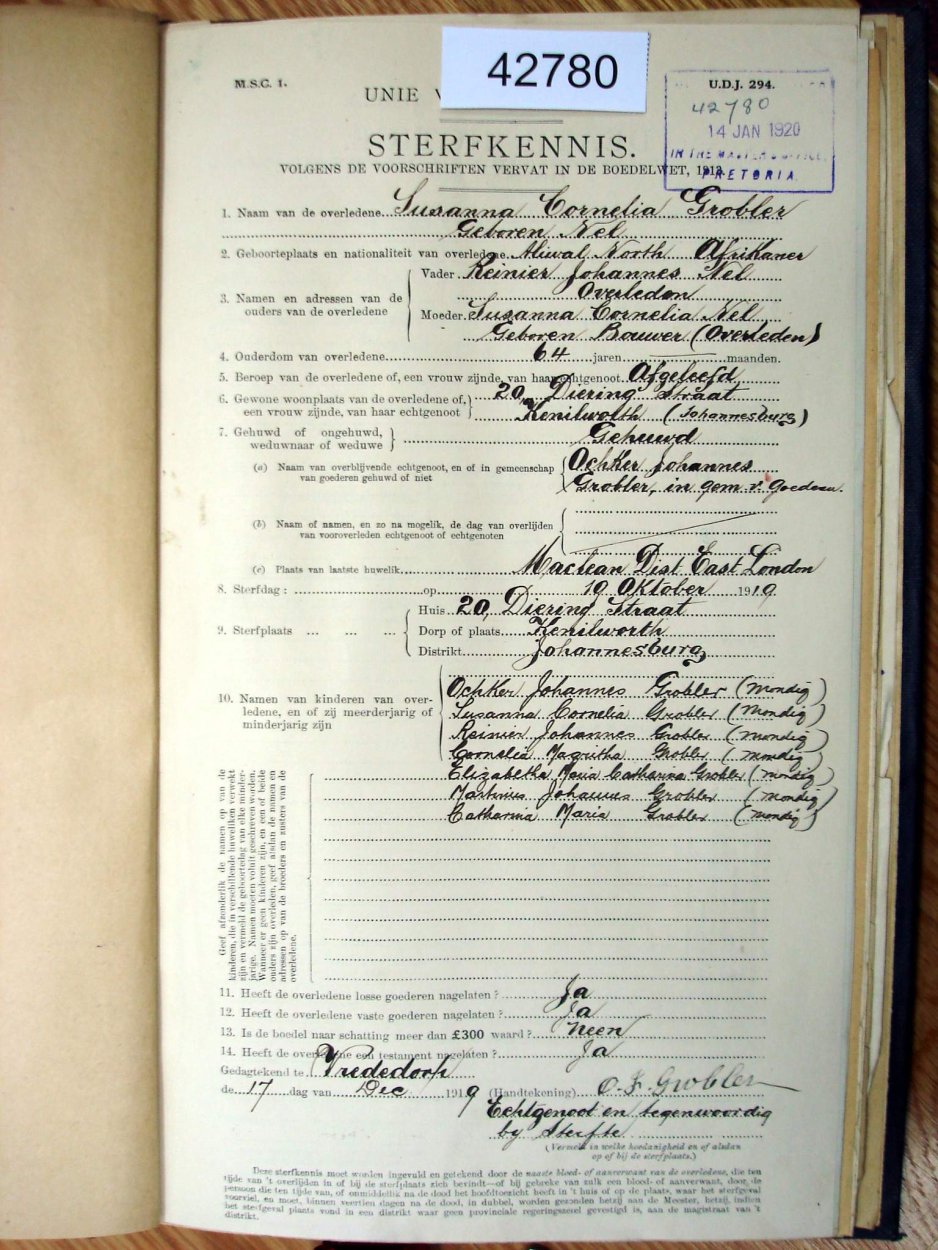 42780
M.S.C. 1.
U.D.J. 294.
UNIE V
42780
14 JAN 1920
IN THE MASTER'S OFFICE,
PRETORIA
STERFKENNIS.
VOLGENS DE VOORSCHRIFTEN VERVAT IN DE BOEDELWET, 1913.
1. Naam van de overledene Susanna Cornelia Grobler
Geboren Nel
2. Geboorteplaats en nationaliteit van overledene Aliwal North Afrikaner
3. Namen en adressen van de ouders van de overledene
Vader Reinier Johannes Nel
Overleden
Moeder Susanna Cornelia Nel
Geboren Bouwer (Overleden)
4. Ouderdom van overledene 64 jaren — maanden.
5. Beroep van de overledene of, een vrouw zijnde, van haar echtgenoot Afgeleefd
6. Gewone woonplaats van de overledene of, 20, Diering Straat
een vrouw zijnde, van haar echtgenoot Kenilworth (Johannesburg)
7. Gehuwd of ongehuwd, weduwnaar of weduwe Gehuwd
(a) Naam van overblijvende echtgenoot, en of in gemeenschap Ochker Johannes
van goederen gehuwd of niet Grobler, in gem. v. Goederen.
(b) Naam of namen, en zo na mogelik, de dag van overlijden
van vooroverleden echtgenoot of echtgenoten
(c) Plaats van laatste huwelik Maclean Dist East London
8. Sterfdag : op 19 Oktober 1919
9. Sterfplaats ... ... ...
Huis 20, Diering Straat
Dorp of plaats Kenilworth
Distrikt Johannesburg
10. Namen van kinderen van overledene, en of zij meerderjarig of minderjarig zijn
Ochker Johannes Grobler (Mondig)
Susanna Cornelia Grobler (Mondig)
Reinier Johannes Grobler (Mondig)
Cornelia Magritha Grobler (Mondig)
Elizabetha Maria Catharina Grobler (Mondig)
Martinus Johannes Grobler (Mondig)
Catharina Maria Grobler (Mondig)
Geef afzonderlik de namen op van de
kinderen, die in verschillende huweliken verwekt
zijn en vermeld de geboortedag van elke minder-
jarige. Namen moeten voluit geschreven worden.
Wanneer er geen kinderen zijn, en een of beide
ouders zijn overleden, geef alsdan de namen en
adressen op van de broeders en zusters van de
overledene.
11. Heeft de overledene losse goederen nagelaten ? Ja
12. Heeft de overledene vaste goederen nagelaten ? Ja
13. Is de boedel naar schatting meer dan £300 waard ? Neen
14. Heeft de overledene een testament nagelaten ? Ja
Gedagtekend te Vrededorp
de 17 dag van Dec 1919 (Handtekening) O. J. Grobler
Echtgenoot en tegenwoordig
by Sterfte
(Vermeld in welke hoedanigheid en of alsdan
op of bij de sterfplaats.)
Deze sterfkennis moet worden ingevuld en getekend door de naaste bloed- of aanverwant van de overledene, die ten
tijde van 't overlijden in of bij de sterfplaats zich bevindt—of bij gebreke van zulk een bloed- of aanverwant, door de
persoon die ten tijde van, of onmiddellik na de dood het hoofdtoezicht heeft in 't huis of op de plaats, waar het sterfgeval
voorviel, en moet, binnen veertien dagen na de dood, in dubbel, worden gezonden hetzij aan de Meester, hetzij, indien
het sterfgeval plaats vond in een distrikt waar geen provinciale regeringszetel gevestigd is, aan de magistraat van 't
distrikt.